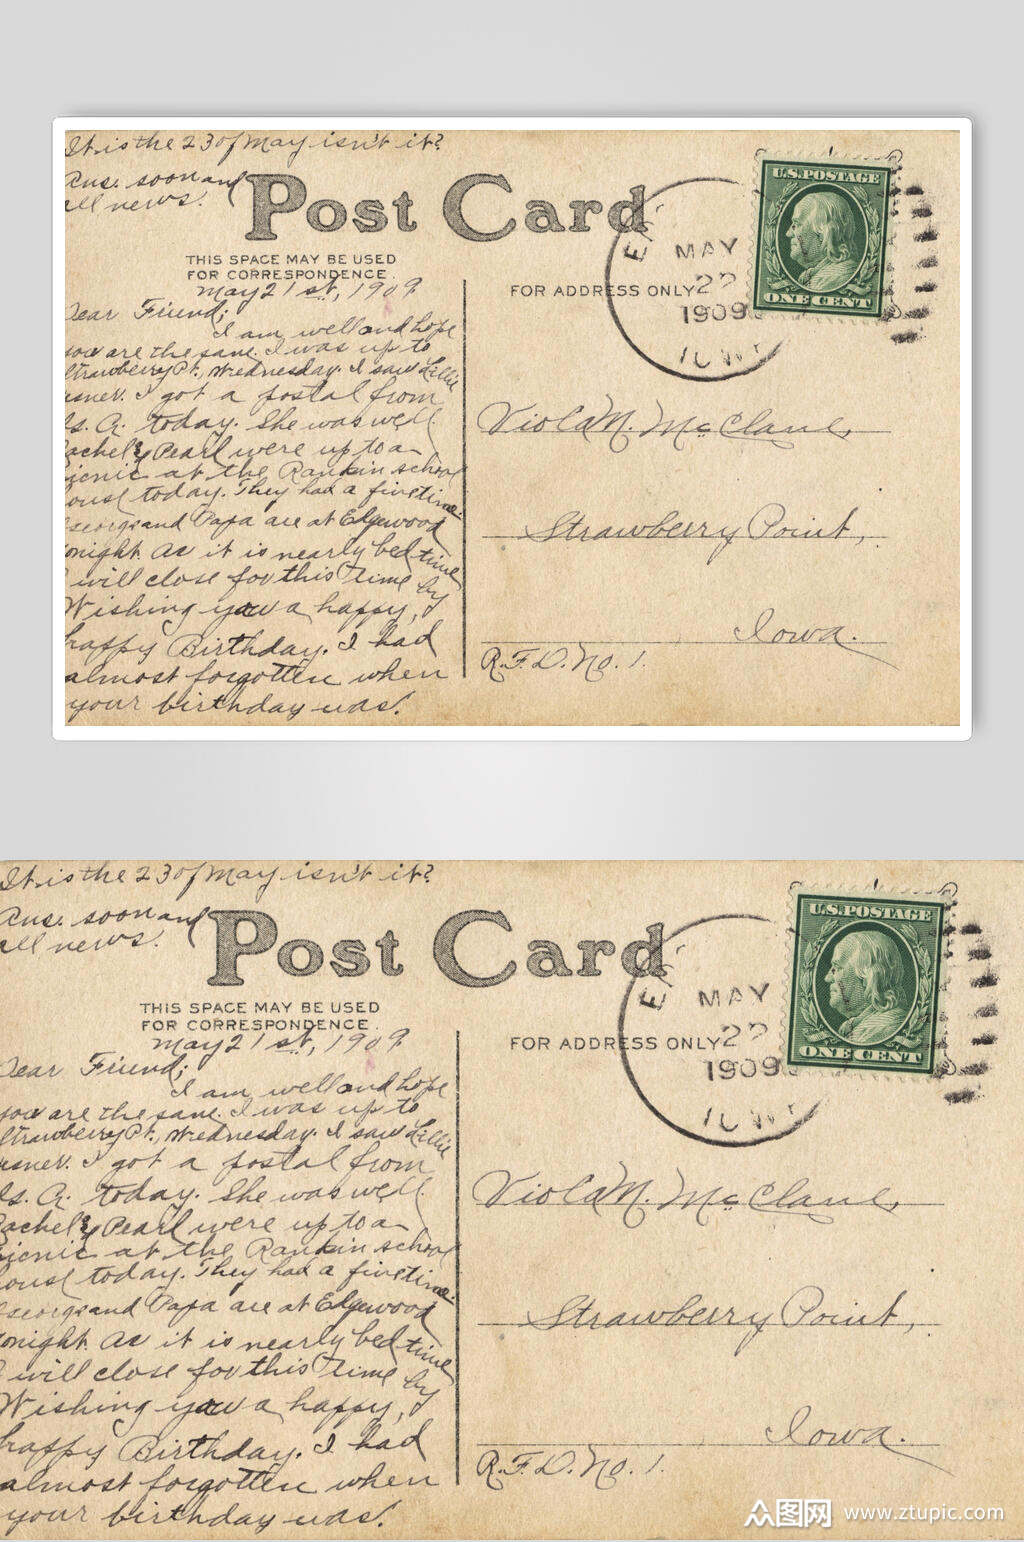 It is the 23 of May isn't it?
Ans. soon and
all news.
Post Card
THIS SPACE MAY BE USED
FOR CORRESPONDENCE.
May 21st, 1909
Dear Friend;
I am well and hope
you are the same. I was up to
Strawberry Pt., Wednesday. I saw Lillie
I got a postal from
today. She was well.
Rachel & Pearl were up to a
picnic at the Rankin school
house today. They had a fine time.
George and Papa are at Edgewood
tonight. As it is nearly bed time
I will close for this time by
Wishing you a happy,
happy Birthday. I had
almost forgotten when
your birthday was.
U.S. POSTAGE
ONE CENT
MAY
22
1909
IOWA
FOR ADDRESS ONLY
Viola M. McClane,
Strawberry Point,
Iowa.
R.F.D. No. 1.
It is the 23 of May isn't it?
Ans. soon and
all news.
Post Card
THIS SPACE MAY BE USED
FOR CORRESPONDENCE.
May 21st, 1909
Dear Friend;
I am well and hope
you are the same. I was up to
Strawberry Pt., Wednesday. I saw Lillie
I got a postal from
today. She was well.
Rachel & Pearl were up to a
picnic at the Rankin school
house today. They had a fine time.
George and Papa are at Edgewood
tonight. As it is nearly bed time
I will close for this time by
Wishing you a happy,
happy Birthday. I had
almost forgotten when
your birthday was.
U.S. POSTAGE
ONE CENT
MAY
22
1909
IOWA
FOR ADDRESS ONLY
Viola M. McClane,
Strawberry Point,
Iowa.
R.F.D. No. 1.
众图网 www.ztupic.com